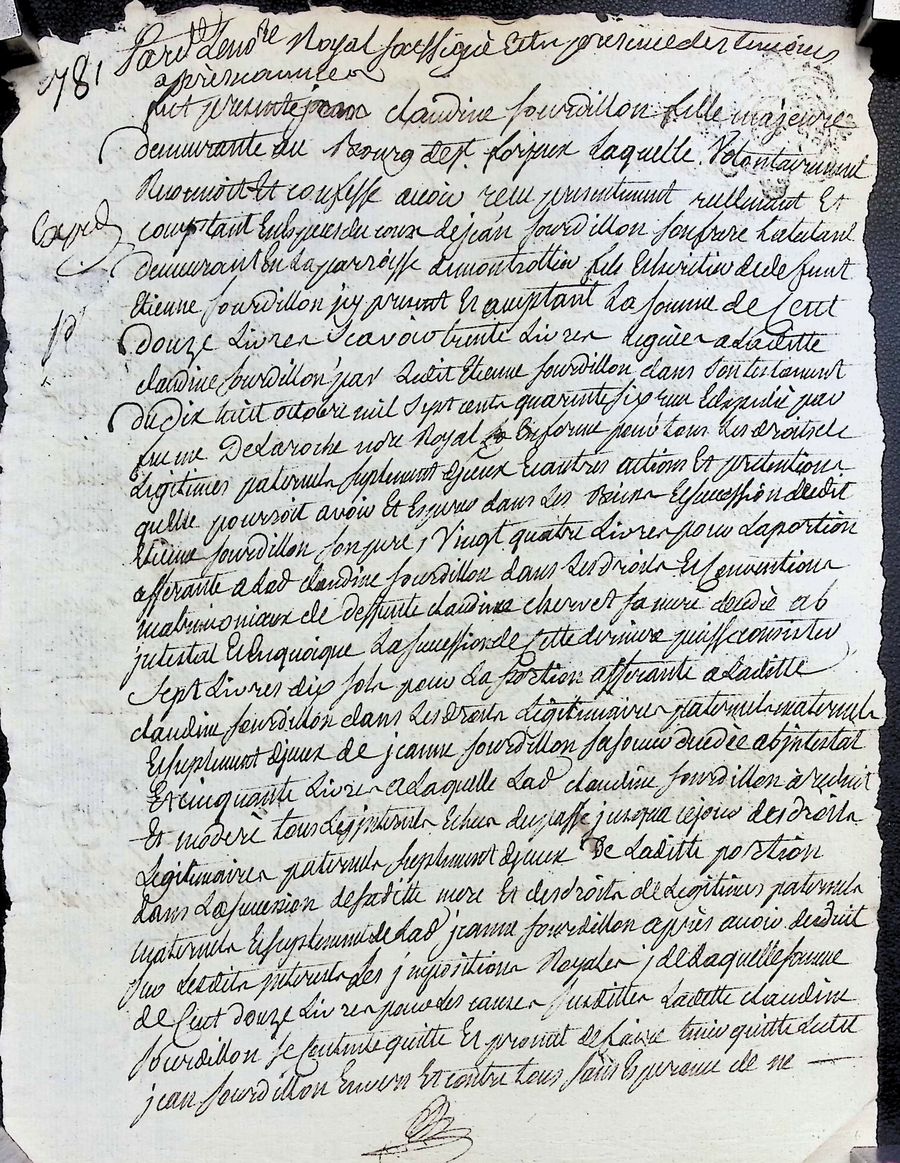 1781
Pard. Le no.re Royal soussigné Et en presence des temoins
apres nommes
fut presente claudine fourdillon fille majeure
demeurante au Bourg de St. forjeux Laquelle Volontairement
Reconnoit Et confesse avoir reçu presentement reellement Et
comptant En Especes du cours de jean fourdillon son frere habitant
demeurant En La parroisse de montrottier fils Et heritier de defunt
Etienne fourdillon jcy present Et acceptant La somme de Cent
Expéd
douze Livres Scavoir trente Livres leguées a Laditte
claudine fourdillon par Ledit Etienne fourdillon dans son testament
du dix huit octobre mil sept cents quarante six reçu Et Expedié par
feu me DeLaroche no.re Royal En forme pour tous Les droits de
Legitimes paternels suplement djceux Et autres actions Et pretentions
quelle pourroit avoir Et Esperer dans Les Biens Et succession dudit
Etienne fourdillon son pere, Vingt quatre Livres pour La portion
afferante a Lad. claudine fourdillon dans Les droits Et Conventions
matrimoniaux de deffunte claudine chervet sa mere decedée ab
jntestat Et En quoique La succession de Cette derniere puisse consister
Sept Livres dix sols pour La portion afferante a Laditte
claudine fourdillon dans Les droits Legitimaires paternels maternels
Et suplement djceux de jeanne fourdillon sa soeur decedée ab jntestat
Et cinquante Livres a Laquelle Lad. claudine fourdillon à reduit
Et moderé tous Les jnterets Echus du passé jusqua ce jour des droits
Legitimaires paternels suplement djceux De Laditte portion
dans La succession de saditte mere Et des droits de Legitimes paternels
maternels Et suplement de Lad. jeanne fourdillon après avoir deduit
sur Lesdits jnterets Les jmpositions Royales, de Laquelle somme
de Cent douze Livres pour Les causes susdittes Laditte claudine
fourdillon se Contente quitte Et promet de faire tenir quitte Ledit
jean fourdillon Envers Et contre tous sans Esperance de ne